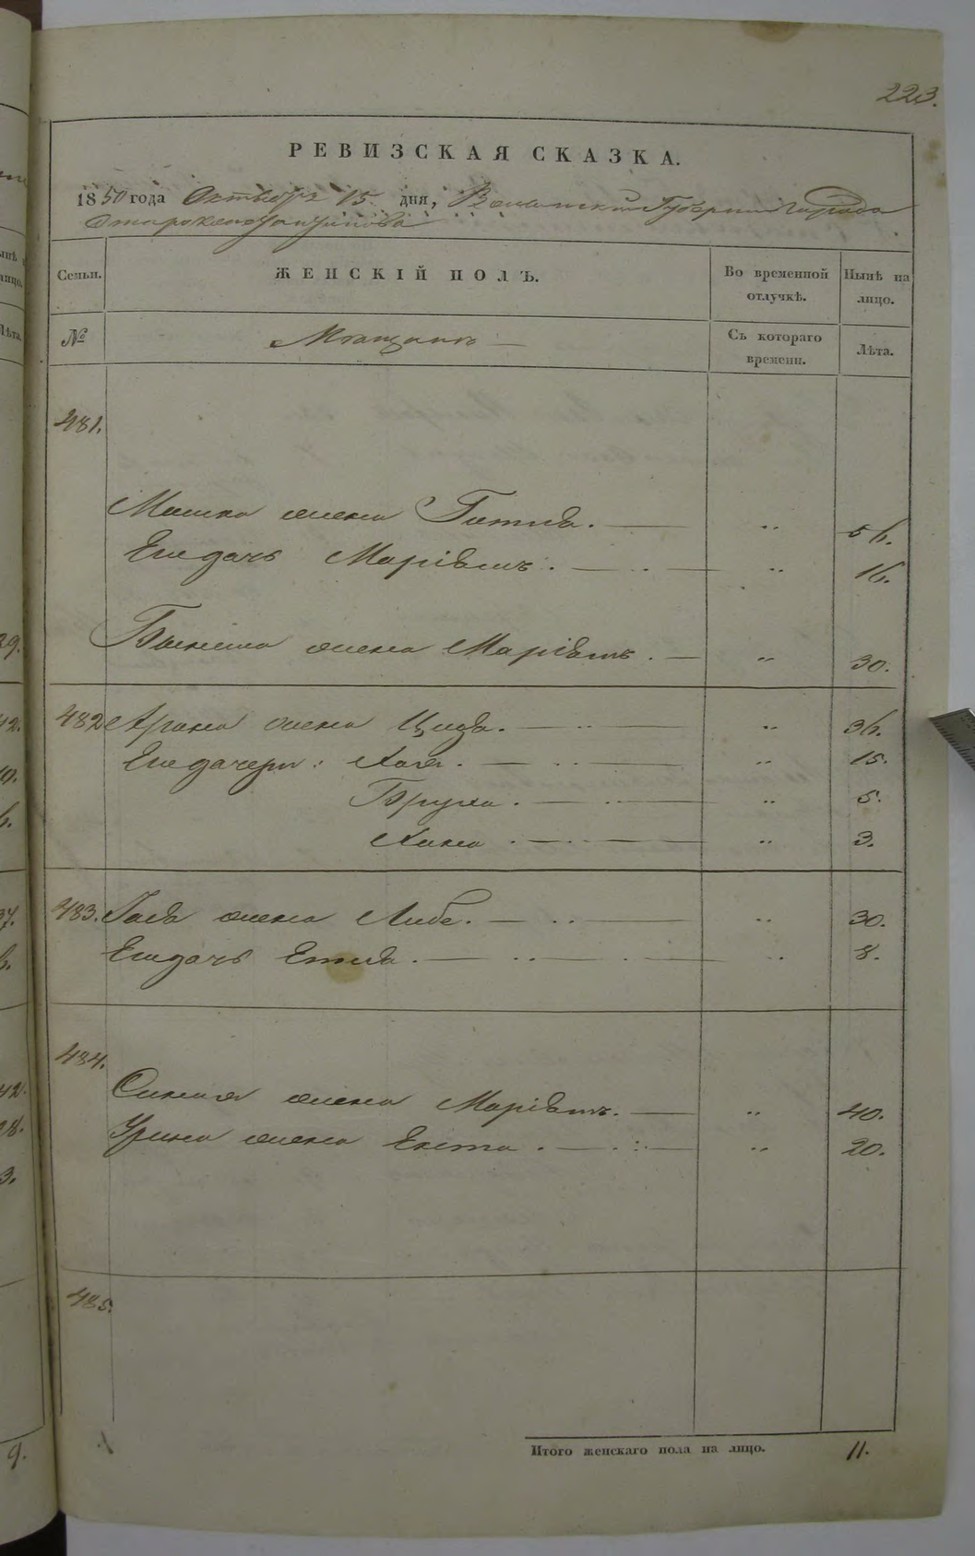 223.
РЕВИЗСКАЯ СКАЗКА.
1850 года Октября 15 дня, Волынской Губернии Города
Староконстантинова
Семьи. ЖЕНСКІЙ ПОЛЪ. Во временной отлучкѣ. Нынѣ на лицо.
№ Мещанъ Съ котораго времени. Лѣта.
481.
Мошка жена Гитля. — „ 56.
Его дочь Маріямъ. — „ 16.
жена Маріямъ. — „ 30.
482 Арона жена — „ 36.
Его дочери: Хая. — „ 15.
Бруха. — „ 5.
Хана — „ 3.
483. жена Либе. — „ 30.
Его дочь Етля. — „ 8.
484.
жена Маріямъ. — „ 40.
жена — „ 20.
485.
Итого женскаго пола на лицо. 11.